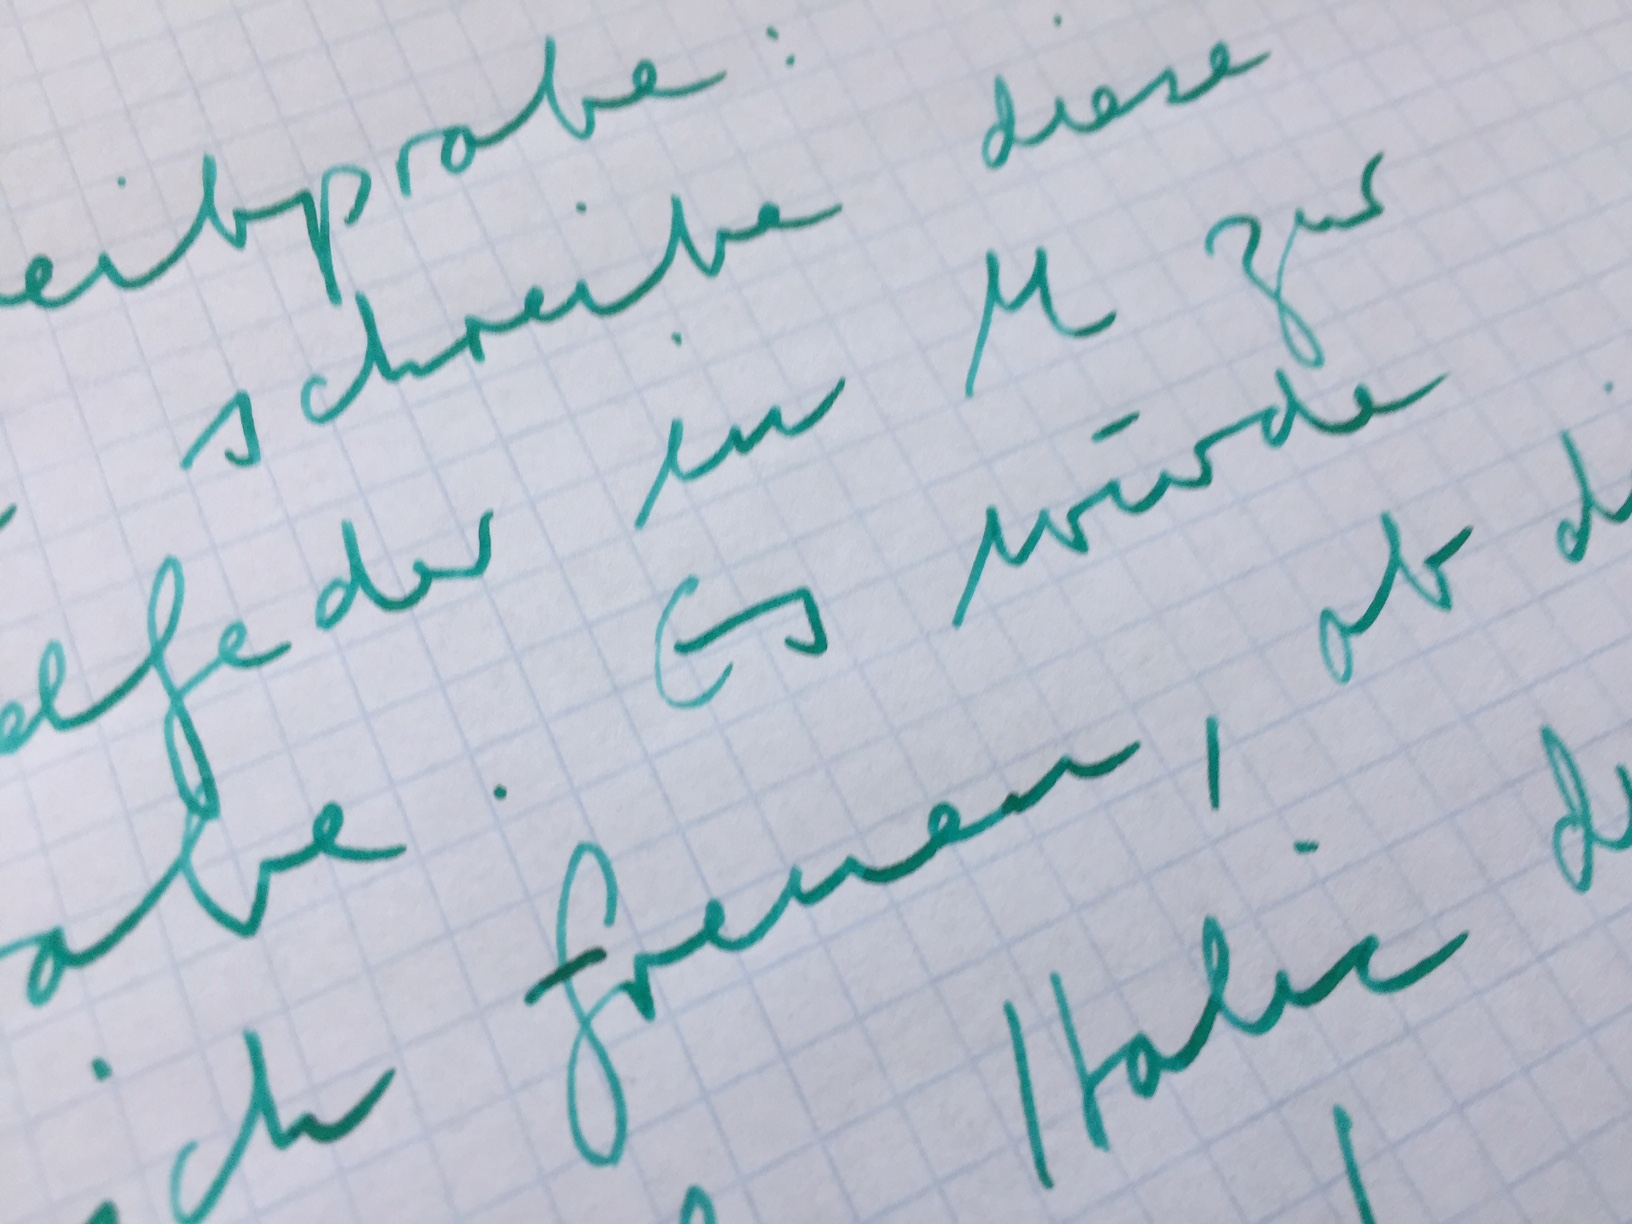 eibprobe:
schreibe diese
elfeder in M zur
abe. Es würde
ich freuen, ob di
Italic d